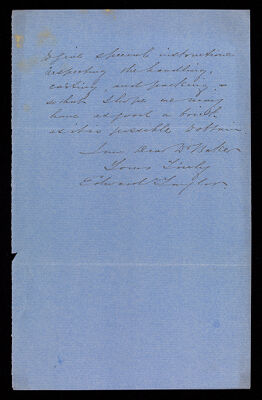 & give special instructions
respecting the handling,
casting, and packing &
what I hope we may
have as good a brick
as it is possible to obtain
I am Dear Dr Baker
Yours Truly
Edward Taylor